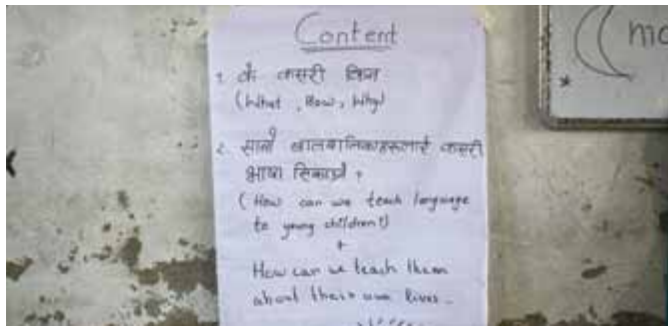 Content
१. के कसरी किन
(What, How, Why)
२. साना बालबालिकाहरूलाई कसरी
भाषा सिकाउने ?
(How can we teach language
to young children?)
+
How can we teach them
about their own lives.
mo